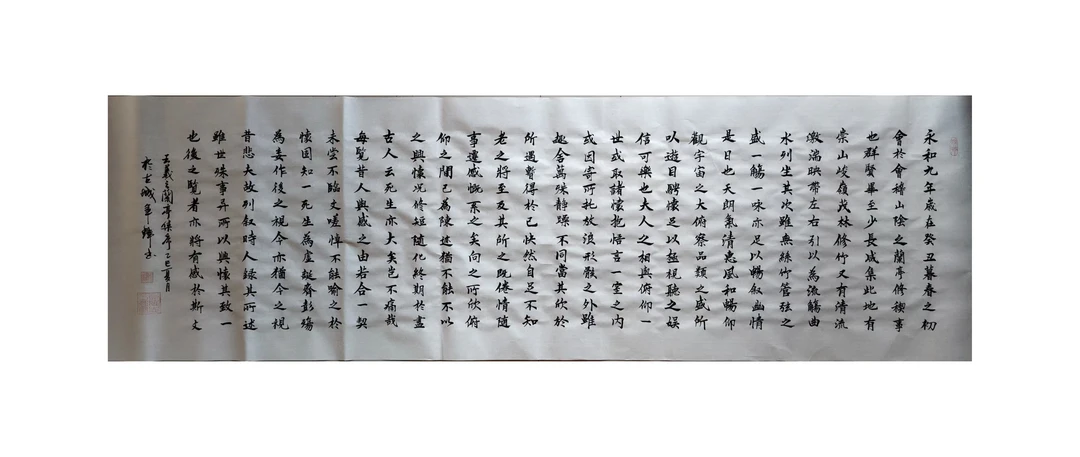 永和九年歲在癸丑暮春之初
會於會稽山陰之蘭亭修禊事
也群賢畢至少長咸集此地有
崇山峻嶺茂林修竹又有清流
激湍映帶左右引以為流觴曲
水列坐其次雖無絲竹管弦之
盛一觴一咏亦足以暢叙幽情
是日也天朗氣清惠風和暢仰
觀宇宙之大俯察品類之盛所
以遊目騁懷足以極視聽之娱
信可樂也夫人之相與俯仰一
世或取諸懷抱悟言一室之内
或因寄所托放浪形骸之外雖
趣舍萬殊静躁不同當其欣於
所遇暫得於己快然自足不知
老之將至及其所之既倦情隨
事遷感慨系之矣向之所欣俯
仰之間已為陳迹猶不能不以
之興懷况修短隨化終期於盡
古人云死生亦大矣豈不痛哉
每覧昔人興感之由若合一契
未嘗不臨文嗟悼不能喻之於
懷固知一死生為虚誕齊彭殤
為妄作後之視今亦猶今之視
昔悲夫故列叙時人録其所述
雖世殊事异所以興懷其致一
也後之覧者亦將有感於斯文
王羲之蘭亭集序乙巳夏月
於古城